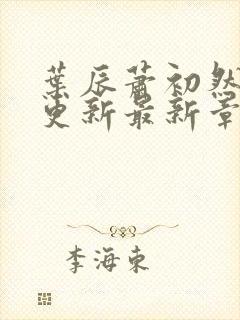 葉辰蕭初然
更新最新章
李海東